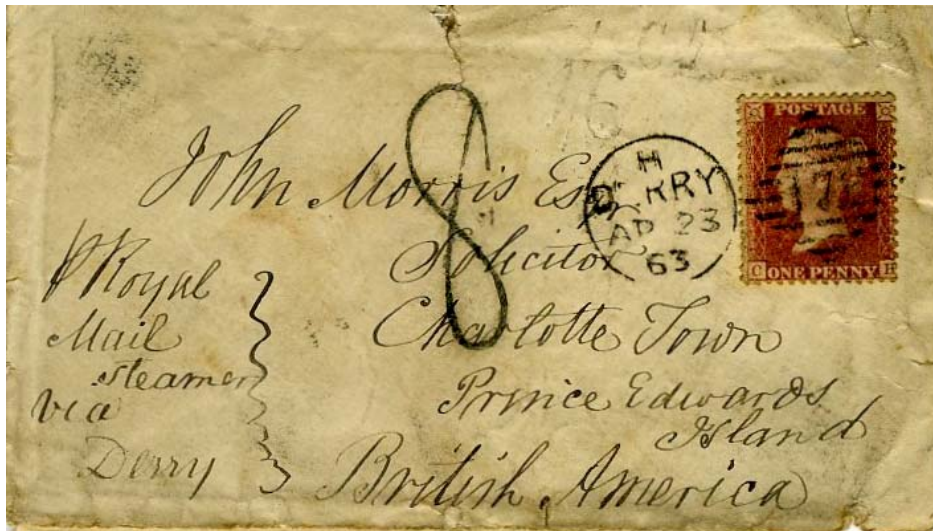 John Morris Esq
Solicitor
Charlotte Town
Prince Edwards
Island
British America
P Royal
Mail
Steamer
via
Derry
8
H
DERRY
AP 23
63
POSTAGE
C ONE PENNY H